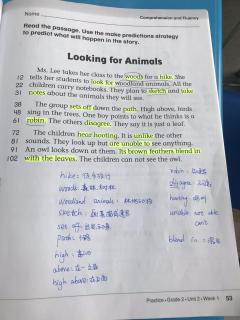 Name
Comprehension and Fluency
Read the passage. Use the make predictions strategy
to predict what will happen in the story.
Looking for Animals
Ms. Lee takes her class to the woods for a hike. She
12 tells her students to look for woodland animals. All the
22 children carry notebooks. They plan to sketch and take
31 notes about the animals they will see.
38 The group sets off down the path. High above, birds
48 sing in the trees. One boy points to what he thinks is a
61 robin. The others disagree. They say it is just a leaf.
72 The children hear hooting. It is unlike the other
81 sounds. They look up but are unable to see anything.
91 An owl looks down at them. Its brown feathers blend in
102 with the leaves. The children can not see the owl.
hike:
woods:
woodland animals:
sketch:
set off:
path:
high:
above:
high above:
robin:
disagree:
hooting:
unable not able
can't
blend in:
Practice • Grade 2 • Unit 2 • Week 1
53